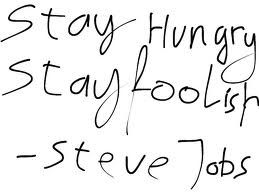 Stay Hungry
Stay foolish
- Steve Jobs